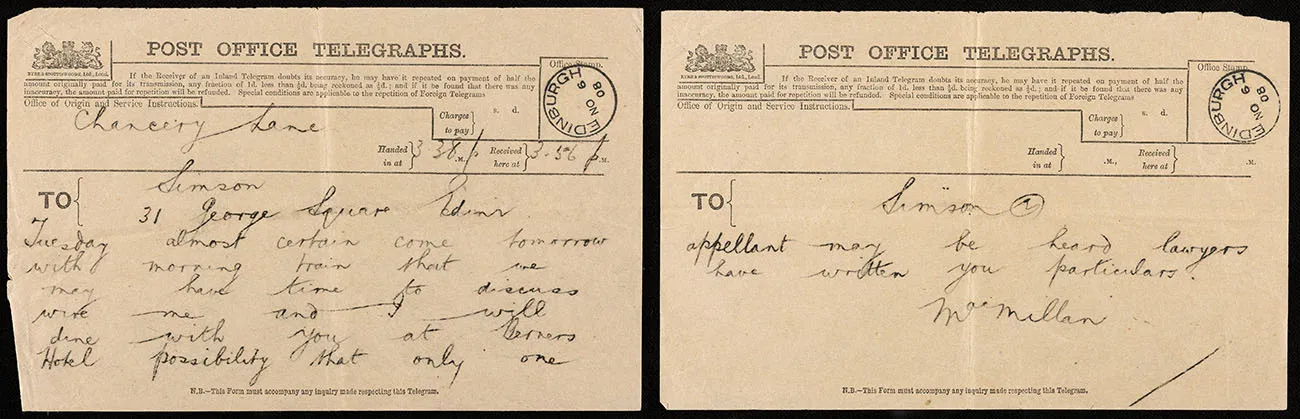 POST OFFICE TELEGRAPHS.
EYRE & SPOTTISWOODE, Ltd., Lond.
Office Stamp.
If the Receiver of an Inland Telegram doubts its accuracy, he may have it repeated on payment of half the
amount originally paid for its transmission, any fraction of 1d. less than ½d. being reckoned as ½d.; and if it be found that there was any
inaccuracy, the amount paid for repetition will be refunded. Special conditions are applicable to the repetition of Foreign Telegrams
EDINBURGH
NO 9
08
Office of Origin and Service Instructions.
Chancery Lane
Charges to pay
s. d.
Handed in at
3.38 p.M.
Received here at
3.56 p.M.
TO
Simson
31 George Square Edinr
Tuesday almost certain come tomorrow
with morning train that we
may have time to discuss
wire me and I will
dine with you at Berners
Hotel possibility that only one
N.B.—This Form must accompany any inquiry made respecting this Telegram.
POST OFFICE TELEGRAPHS.
EYRE & SPOTTISWOODE, Ltd., Lond.
Office Stamp.
If the Receiver of an Inland Telegram doubts its accuracy, he may have it repeated on payment of half the
amount originally paid for its transmission, any fraction of 1d. less than ½d. being reckoned as ½d.; and if it be found that there was any
inaccuracy, the amount paid for repetition will be refunded. Special conditions are applicable to the repetition of Foreign Telegrams
EDINBURGH
NO 9
08
Office of Origin and Service Instructions.
Charges to pay
s. d.
Handed in at
.M.,
Received here at
.M.
TO
Simson 2
appellant may be heard lawyers
have written you particulars.
MacMillan
N.B.—This Form must accompany any inquiry made respecting this Telegram.